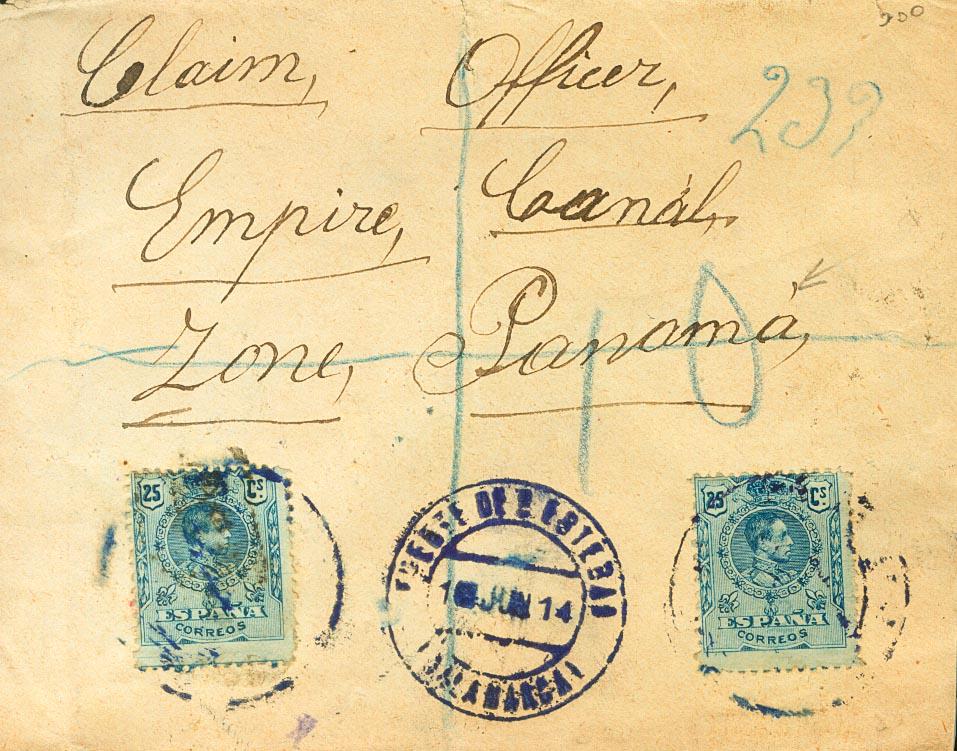 Claim, Officer,
Empire, Canal,
Zone, Panamá,
10
25 Cs.
ESPAÑA
CORREOS
PUENTE DE S. ESTEBAN
JUN 14
(SALAMANCA)
25 Cs.
ESPAÑA
CORREOS